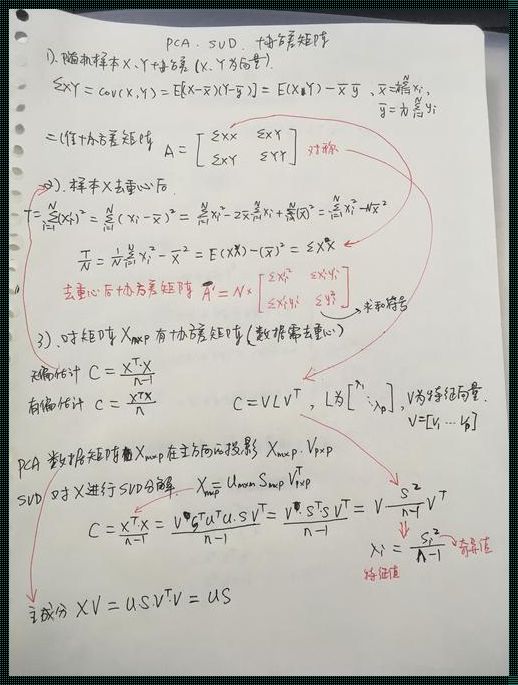 PCA. SVD. 协方差矩阵
1). 随机样本X、Y协方差(X、Y为向量).
ΣXY = cov(X,Y) = E[(X-x̄)(Y-ȳ)] = E(XY) - x̄ȳ , x̄ = 1/N Σ_{i=1}^{N} xi, ȳ = 1/N Σ_{i=1}^{N} yi
二维协方差矩阵 A = [ΣXX ΣXY; ΣXY ΣYY] 对称
2). 样本X去重心后.
T = Σ_{i=1}^{N} (xi')² = Σ_{i=1}^{N} (xi-x̄)² = Σ_{i=1}^{N} xi² - 2x̄ Σ_{i=1}^{N} xi + Σ_{i=1}^{N} (x̄)² = Σ_{i=1}^{N} xi² - Nx̄²
T/N = 1/N Σ_{i=1}^{N} xi² - x̄² = E(XX) - (x̄)² = ΣXX
去重心后协方差矩阵 A' = N× [Σxi² Σxiyi; Σxiyi Σyi²] → 求和符号
3). 对矩阵 Xm×p 有协方差矩阵 (数据需去重心)
无偏估计 C = XᵀX/(n-1)
有偏估计 C = XᵀX/n C = VLVᵀ , L为[λ1 ⋱ λp], V为特征向量. V=[V1 ⋯ Vp]
PCA 数据矩阵Xm×p在主方向的投影 Xm×p·Vp×p
SVD 对X进行SVD分解. Xm×p = Um×m Sm×p Vᵀp×p
C = Xᵀ·X/(n-1) = V SᵀUᵀU·SVᵀ/(n-1) = V·SᵀSVᵀ/(n-1) = V S²/(n-1) Vᵀ
λi = Si²/(n-1) → 奇异值
特征值
主成分 XV = USVᵀ·V = US